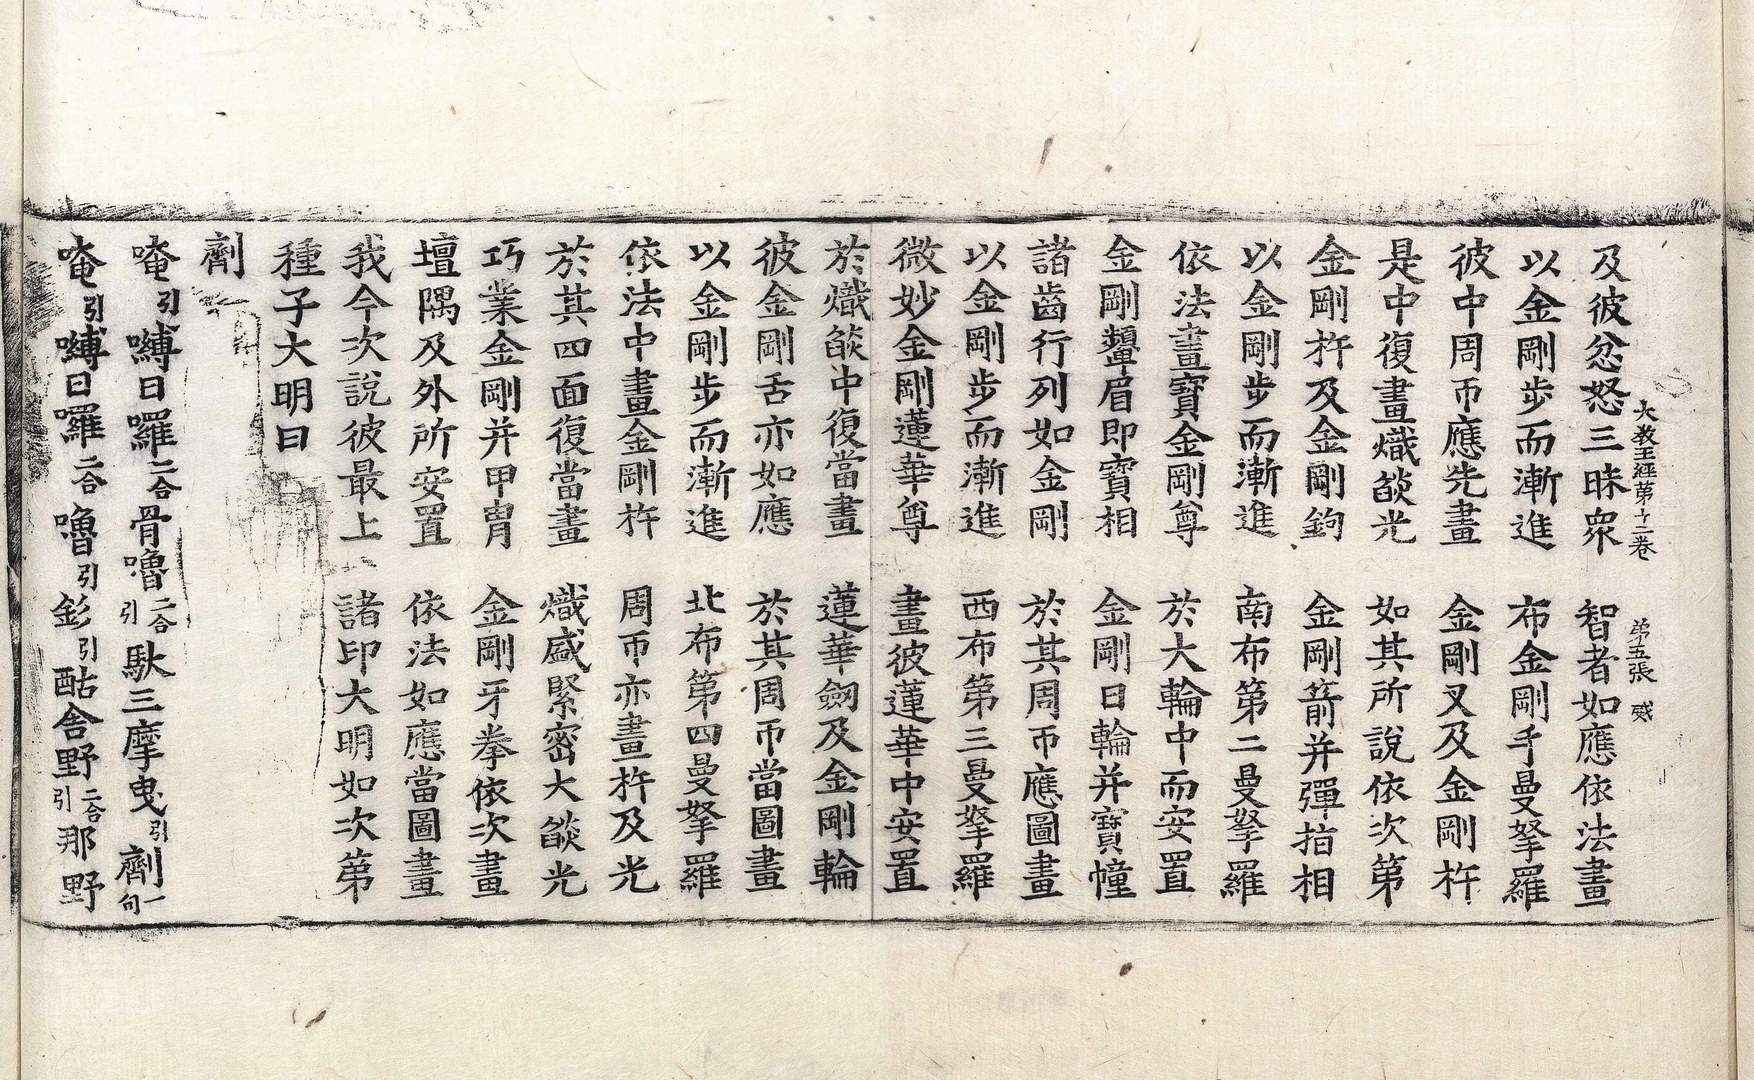 大教王經第十二卷　第五張
及彼忿怒三昧眾　智者如應依法畫
以金剛步而漸進　布金剛手曼拏羅
彼中周帀應先畫　金剛叉及金剛杵
是中復畫熾燄光　如其所說依次第
金剛杵及金剛鉤　金剛箭并彈指相
以金剛步而漸進　南布第二曼拏羅
依法畫寶金剛尊　於大輪中而安置
金剛顰眉即寶相　金剛日輪并寶幢
諸齒行列如金剛　於其周帀應圖畫
以金剛步而漸進　西布第三曼拏羅
微妙金剛蓮華尊　畫彼蓮華中安置
於熾燄中復當畫　蓮華劒及金剛輪
彼金剛舌亦如應　於其周帀當圖畫
以金剛步而漸進　北布第四曼拏羅
依法中畫金剛杵　周帀亦畫杵及光
於其四面復當畫　熾盛緊密大燄光
巧業金剛并甲冑　金剛牙拳依次畫
壇隅及外所安置　依法如應當圖畫
我今次說彼最上　諸印大明如次第
種子大明曰
劑
唵引嚩日囉二合骨嚕二合引馱三摩曳引劑一句
唵引嚩日囉二合嚕引釤引酤舍野二合引那野